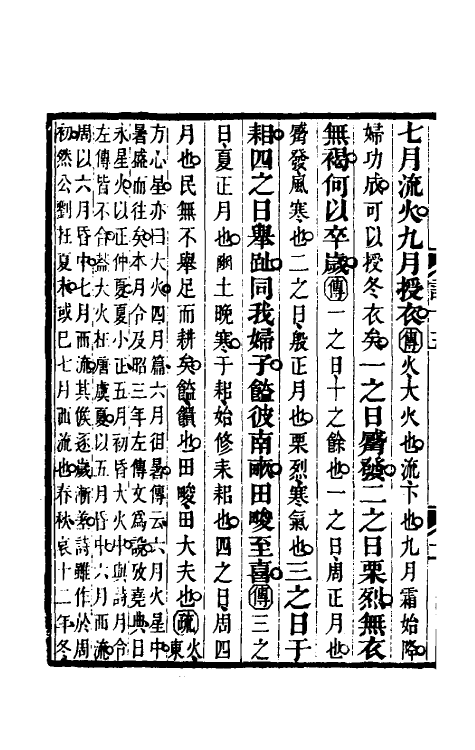 七月流火九月授衣傳火大火也流下也九月霜始降
婦功成可以授冬衣矣一之日觱發二之日栗烈無衣
無褐何以卒歲傳一之日十之餘也一之日周正月也
觱發風寒也二之日殷正月也栗烈寒氣也三之日于
耜四之日舉趾同我婦子饁彼南畝田畯至喜傳三之
日夏正月也豳土晚寒于耜始修耒耜也四之日周四
月也民無不舉足而耕矣饁饋也田畯田大夫也疏火東
方心星亦曰大火四月篇六月徂暑傳云六月火星中
暑盛而往矣本月令及昭三年左傳文爲說攷堯典日
永星火以正仲夏夏小正五月初昏大火中與詩月令
左傳皆不合蓋大火在唐虞夏以五月昏中六月西流
周以六月昏中七月西流其候逐歲漸差詩雖作於周
初然公劉在夏末或巳七月西流也春秋哀十二年冬